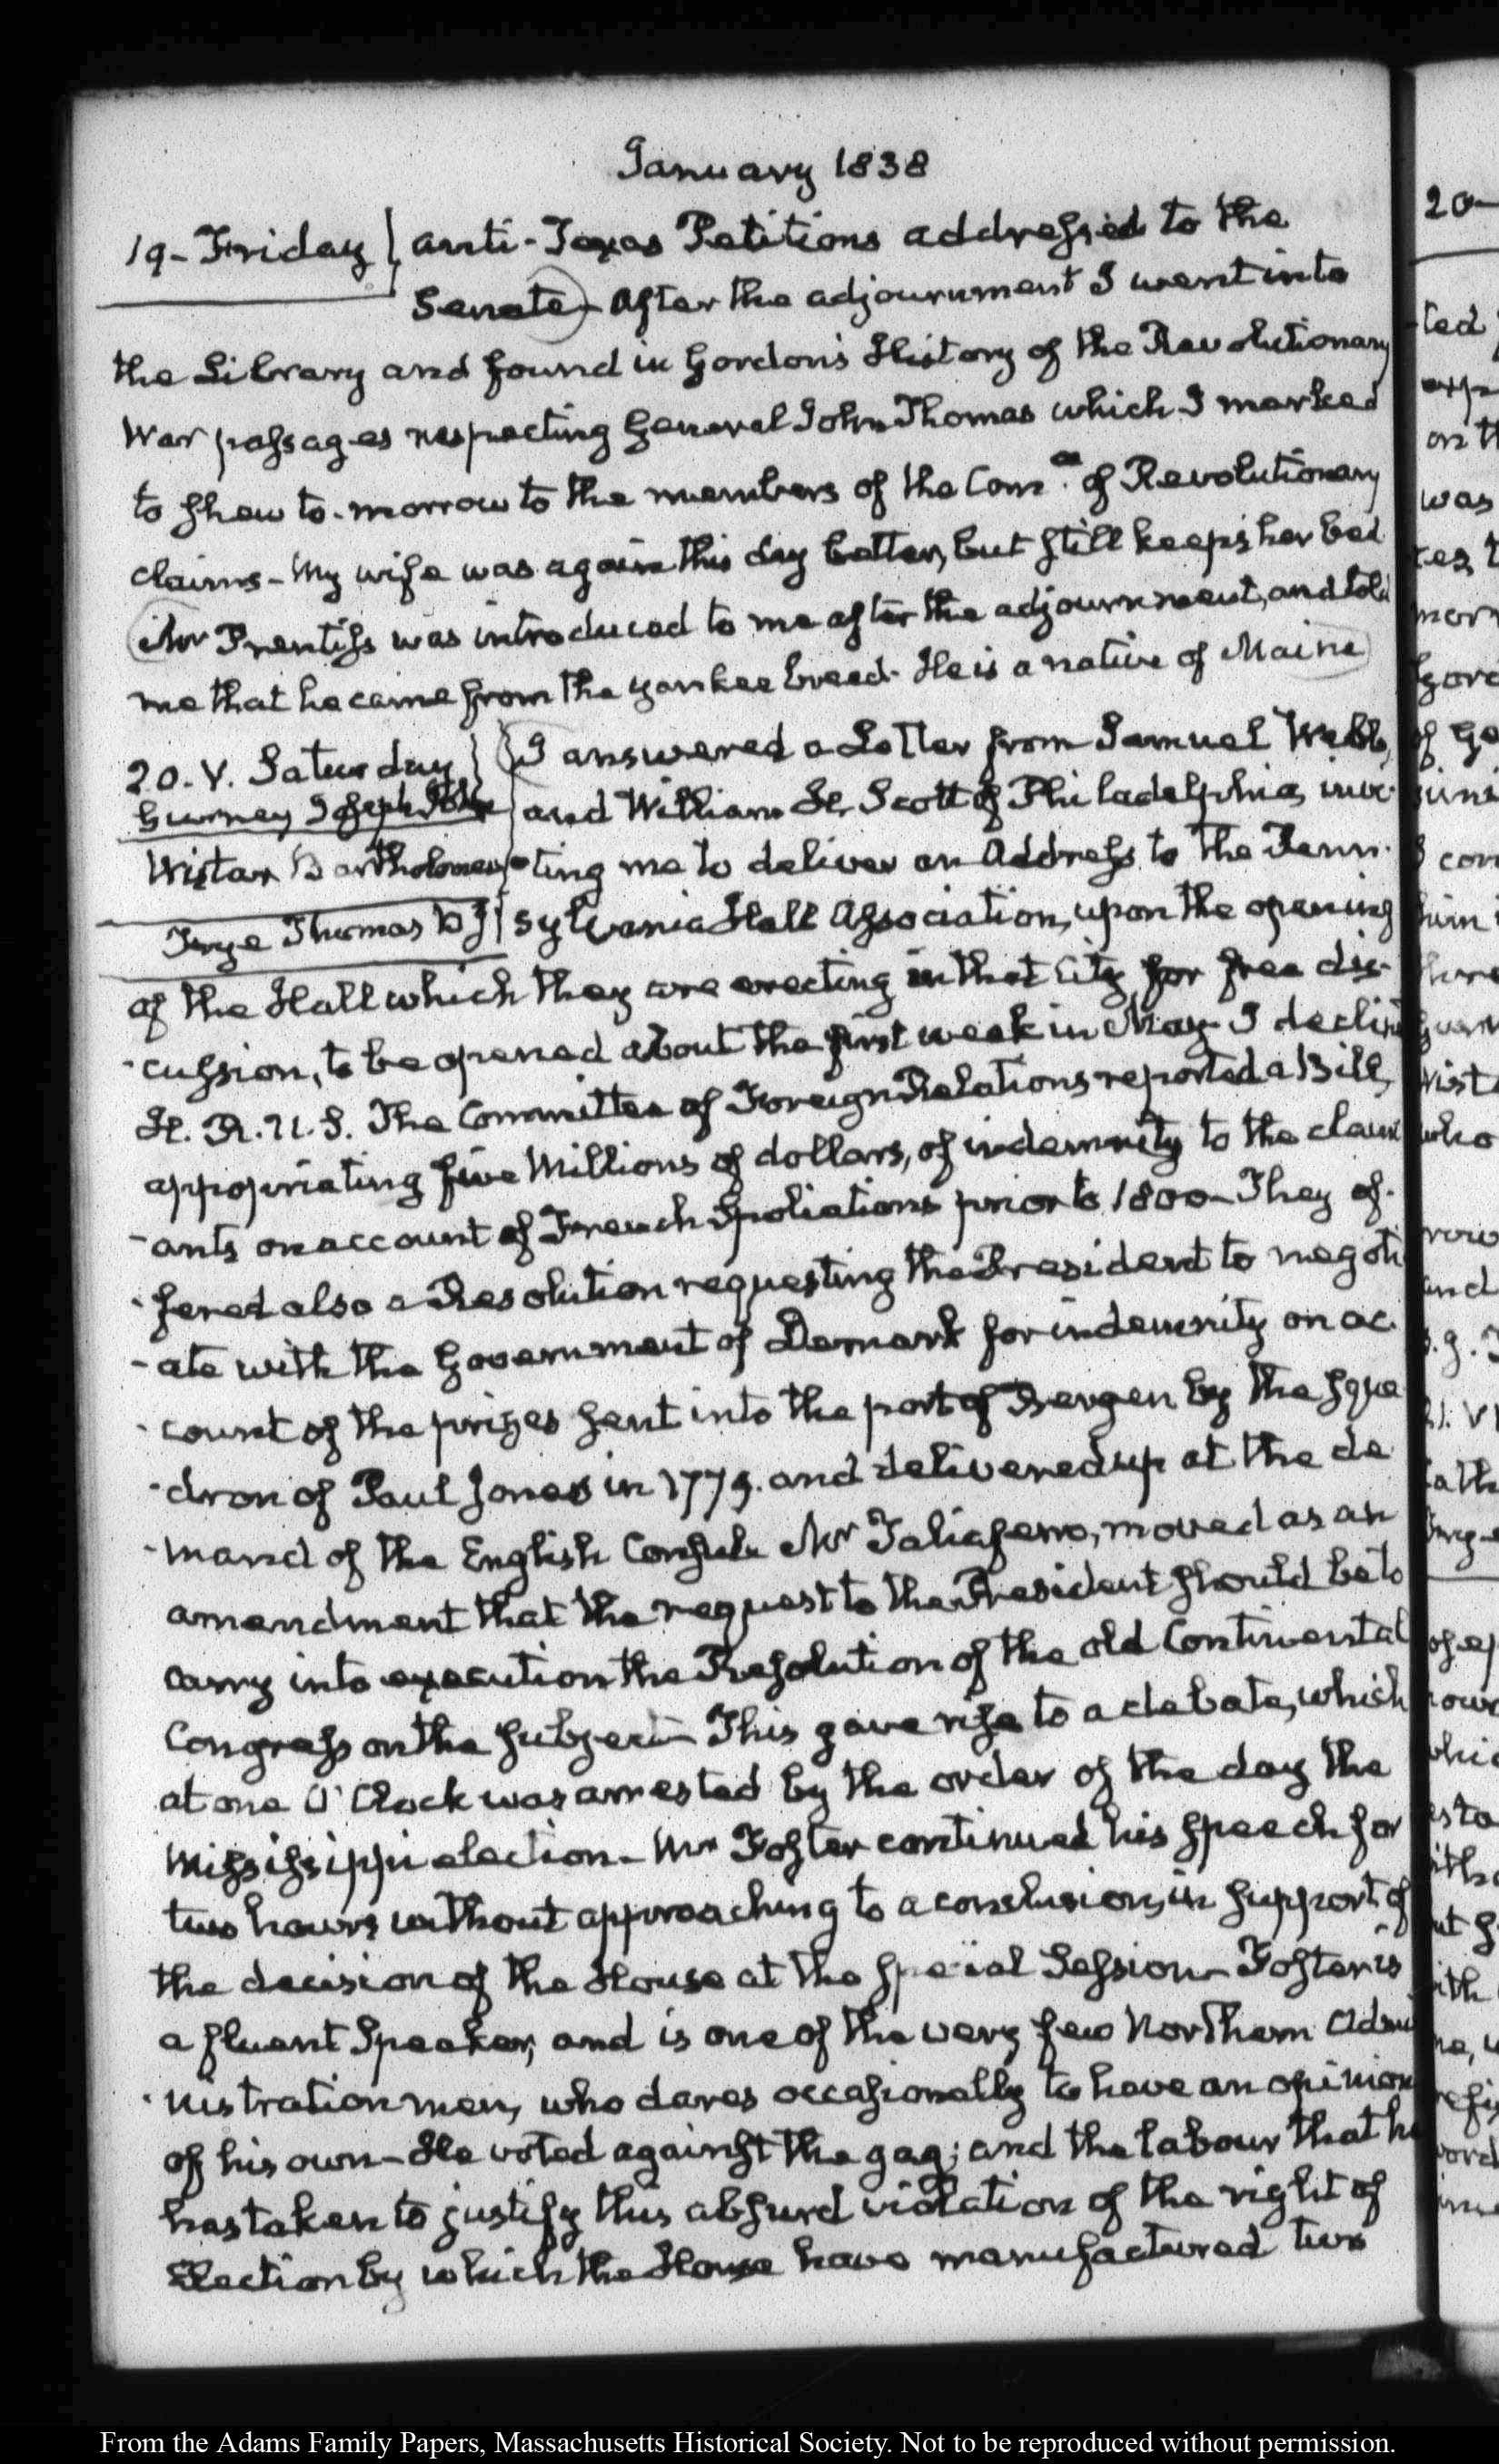 January 1838
19- Friday
anti-Texas Petitions addressed to the
Senate) - After the adjournment I went into
the Library and found in Gordon's History of the Revolutionary
War passages respecting General John Thomas which I marked
to shew to-morrow to the members of the Comee. of Revolutionary
claims - My wife was again this day better, but still keeps her bed
(Mr Prentiss was introduced to me after the adjournment, and told
me that he came from the yankee breed. He is a native of Maine)
20. V. Saturday
Gurney Joseph John
Wistar Bartholomew
Thomas B J
(I answered a Letter from Samuel Webb,
and William H. Scott of Philadelphia, invi-
-ting me to deliver an Address to the Penn-
sylvania Hall Association, upon the opening
of the Hall which they are erecting in that City for free dis-
-cussion, to be opened about the first week in May- I declin
H. R. U. S. The Committee of Foreign Relations reported a Bill,
appropriating five Millions of dollars, of indemnity to the claim
-ants on account of French Spoliations prior to 1800- They of-
-fered also a Resolution requesting the President to negoti
-ate with the Government of Demark for indemnity on ac-
-count of the prizes sent into the port of Bergen by the squa
-dron of Paul Jones in 1779. and delivered up at the de
-mand of the English Consul. Mr Taliaferro, moved as an
amendment that the request to the President should be to
carry into execution the Resolution of the old Continental
Congress on the subject- This gave rise to a debate, which
at one O'Clock was arrested by the order of the day the
Mississippi election- Mr Foster continued his speech for
two hours without approaching to a conclusion, in support of
the decision of the House at the special Session- Foster is
a fluent Speaker, and is one of the very few Northern Admi
-nistration men, who dares occasionally to have an opinion
of his own- He voted against the gag; and the labour that he
has taken to justify this absurd violation of the right of
Election by which the House have manufactured two
20-
From the Adams Family Papers, Massachusetts Historical Society. Not to be reproduced without permission.